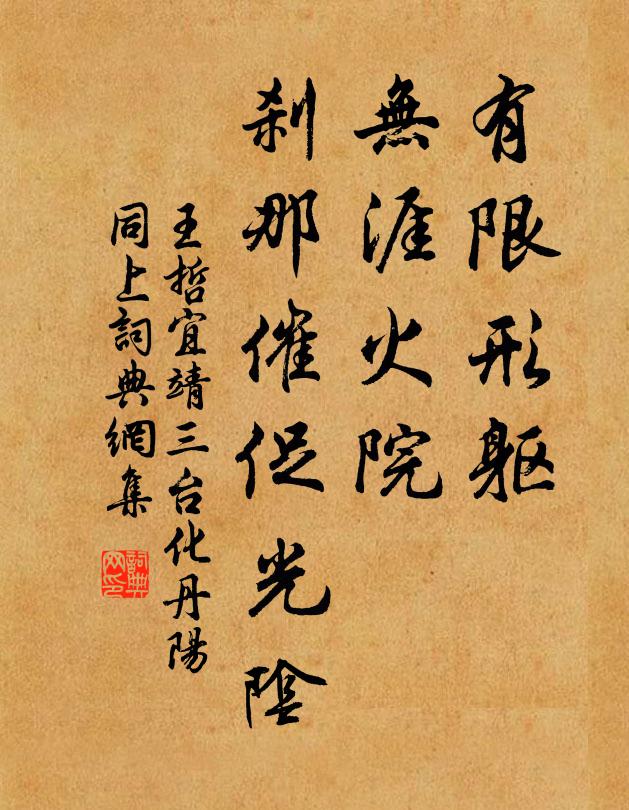 有限形軀
無涯火院
刹那催促光陰
王哲宜靖三台化丹陽
同上詞典網集
詞典网印